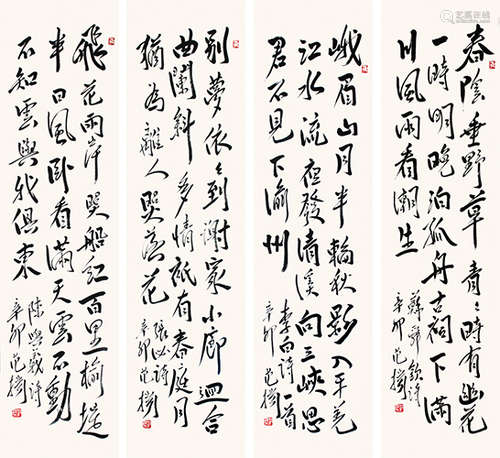 艺狐在线
春陰垂野草青々時有幽花
一樹明晚泊孤舟古祠下滿
川風雨看潮生
蘇舜欽詩
辛卯
峨眉山月半輪秋影入平羌
江水流夜發清溪向三峽思
君不見下渝州
李白詩一首
辛卯
别夢依々到謝家小廊迴合
曲闌斜多情衹有春庭月
猶為離人照落花
張泌詩
辛卯
飛花兩岸照船紅百里榆堤
半日風卧看滿天雲不動
不知雲與我俱東
陳與義詩
辛卯